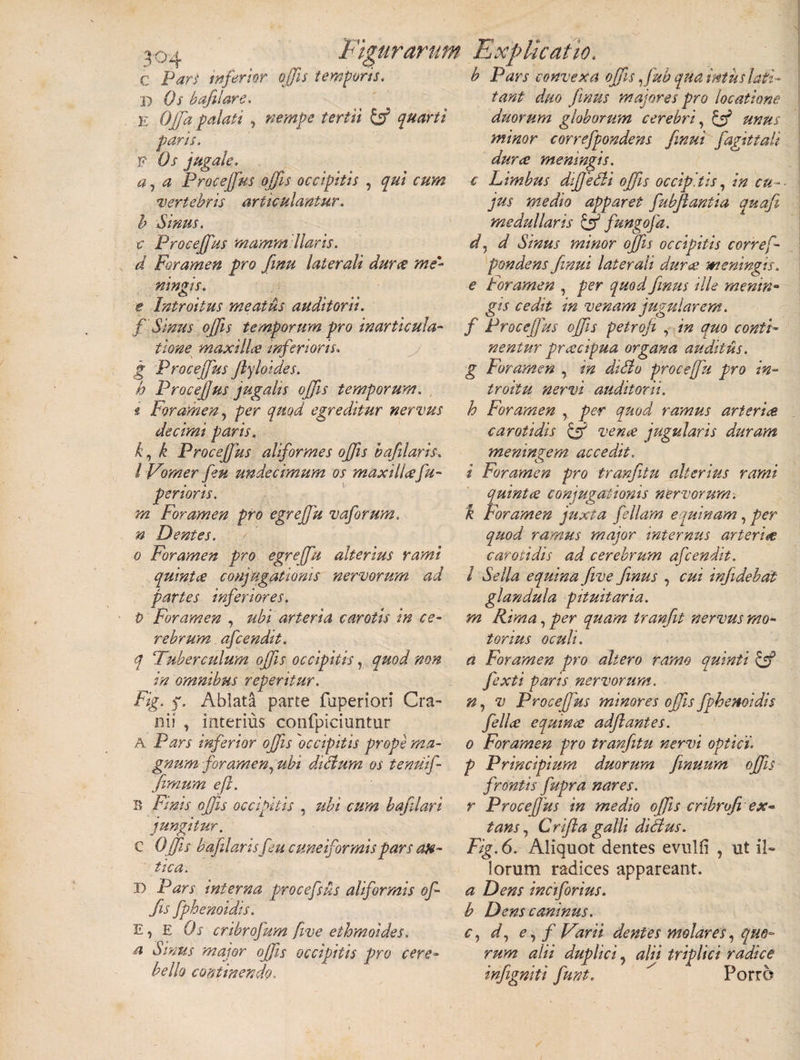 304 Figurarum Explicatio.
C Pars inferior oſſis temporis.
D Os baſilare.
E Oſſa palati , nempe tertii & quarti
paris.
F Os jugale.
a, a Proceſſus oſſis occipitis , qui cum
vertebris articulantur.
b Sinus.
c Proceſſus mammillaris.
d Foramen pro ſinu laterali duræ me-
ningis.
e Introitus meatûs auditorii.
f Sinus oſſis temporum pro inarticula-
tione maxillæ inferioris.
g Proceſſus ſtyloides.
h Proceſſus jugalis oſſis temporum.
i Foramen, per quod egreditur nervus
decimi paris.
k, k Proceſſus aliformes oſſis baſilaris.
l Vomer ſeu undecimum os maxillæ ſu-
perioris.
m Foramen pro egreſſu vaſorum.
n Dentes.
o Foramen pro egreſſu alterius rami
quintæ conjugationis nervorum ad
partes inferiores.
p Foramen , ubi arteria carotis in ce-
rebrum aſcendit.
q Tuberculum oſſis occipitis, quod non
in omnibus reperitur.
Fig. 5. Ablatâ parte ſuperiori Cra-
nii , interiùs conſpiciuntur
A Pars inferior oſſis occipitis propè ma-
gnum foramen, ubi dictum os tenuiſ-
ſimum eſt.
B Finis oſſis occipitis , ubi cum baſilari
jungitur.
C Oſſis baſilaris ſeu cuneiformis pars an-
tica.
D Pars interna proceſsûs aliformis oſ-
ſis ſphenoidis.
E, E Os cribroſum ſive ethmoides.
a Sinus major oſſis occipitis pro cere-
bello continendo.
b Pars convexa oſſis, ſub qua intùs lati-
tant duo ſinus majores pro locatione
duorum globorum cerebri, & unus
minor correſpondens ſinui ſagittali
duræ meningis.
c Limbus diſſecti oſſis occipitis, in cu-
jus medio apparet ſubſtantia quaſi
medullaris & fungoſa.
d, d Sinus minor oſſis occipitis correſ-
pondens ſinui laterali duræ meningis.
e Foramen , per quod ſinus ille menin-
gis cedit in venam jugularem.
f Proceſſus oſſis petroſi , in quo conti-
nentur præcipua organa auditûs.
g Foramen , in dicto proceſſu pro in-
troitu nervi auditorii.
h Foramen , per quod ramus arteriæ
carotidis & venæ jugularis duram
meningem accedit.
i Foramen pro tranſitu alterius rami
quintæ conjugationis nervorum.
k Foramen juxta ſellam equinam, per
quod ramus major internus arteriæ
carotidis ad cerebrum aſcendit.
l Sella equina ſive ſinus , cui inſidebat
glandula pituitaria.
m Rima, per quam tranſit nervus mo-
torius oculi.
a Foramen pro altero ramo quinti &
ſexti paris nervorum.
n, v Proceſſus minores oſſis ſphenoidis
ſellæ equinæ adſtantes.
o Foramen pro tranſitu nervi optici.
p Principium duorum ſinuum oſſis
frontis ſupra nares.
r Proceſſus in medio oſſis cribroſi ex-
tans, Criſta galli dictus.
Fig. 6. Aliquot dentes evulſi , ut il-
lorum radices appareant.
a Dens inciſorius.
b Dens caninus.
c, d, e, f Varii dentes molares, quo-
rum alii duplici, alii triplici radice
inſigniti ſunt. Porrò